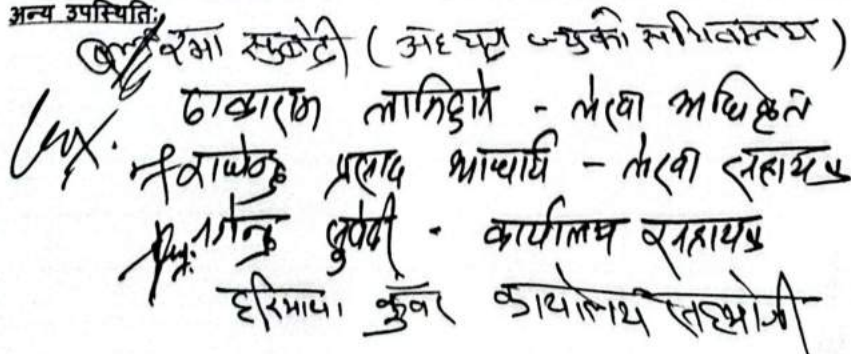 अन्य उपस्थितिः
रमा सुवेदी (अध्यक्ष ज्यूको सचिवालय)
ढाकाराम लामिछाने - लेखा अधिकृत
राजेन्द्र प्रसाद आचार्य - लेखा सहायक
नगेन्द्र सुवेदी - कार्यालय सहायक
हरिमाया कुँवर कार्यालय सहयोगी